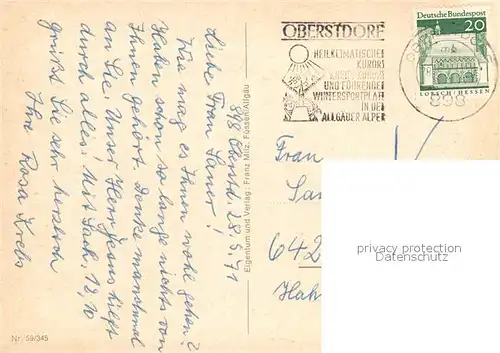 898 Oberstd. 28.9.71
Liebe Frau Sauer!
Wie mag es Ihnen wohl gehen?
Haben schon so lange nichts von
Ihnen gehört. Denke manchmal
an Sie. Unser Herr Jesus hilft
durch alles! Mit Sach. 12,10
grüßt Sie sehr herzlich
Ihre Rosa Krebs
Nr. 59/345
Eigentum und Verlag: Franz Milz, Füssen/Allgäu
OBERSTDORF
HEILKLIMATISCHER
KURORT
UND FÜHRENDER
WINTERSPORTPLATZ
IN DEN
ALLGÄUER ALPEN
898
Deutsche Bundespost
20
LORSCH/HESSEN
Frau
642
privacy protection
Datenschutz